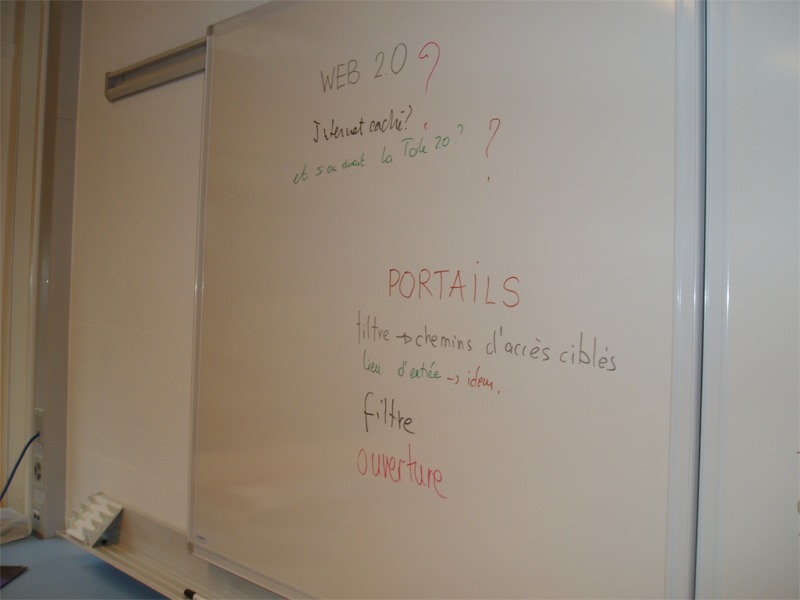 WEB 2.0 ?
Internet caché? ?
et la Toile 2.0? ?
PORTAILS
filtre → chemins d'accès ciblés
lieu d'entrée → idem.
filtre
ouverture